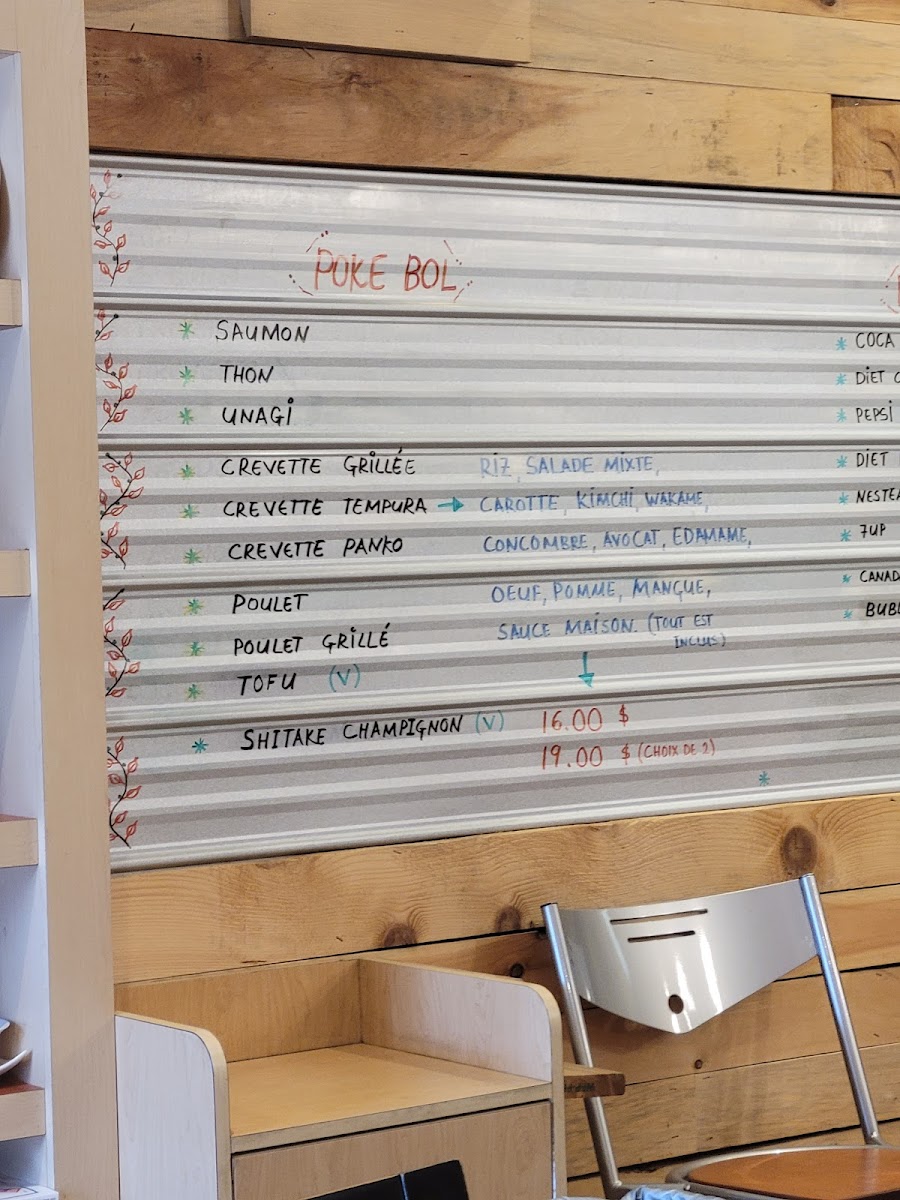 POKE BOL
SAUMON
THON
UNAGI
CREVETTE GRILLÉE
CREVETTE TEMPURA →
CREVETTE PANKO
POULET
POULET GRILLÉ
TOFU (V)
SHITAKE CHAMPIGNON (V)
RIZ, SALADE MIXTE,
CAROTTE, KIMCHI, WAKAME,
CONCOMBRE, AVOCAT, EDAMAME,
OEUF, POMME, MANGUE,
SAUCE MAISON. (TOUT EST
INCLUS)
16.00 $
19.00 $ (CHOIX DE 2)
COCA
DIET
PEPSI
DIET
NESTEA
7UP
CANAD
BUB